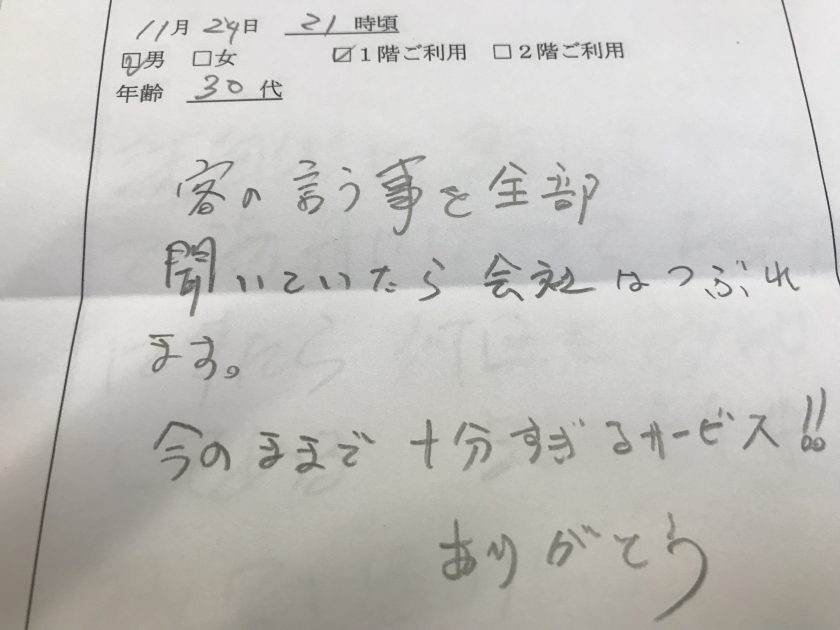 11月24日 21時頃
☑男 □女 ☑1階ご利用 □2階ご利用
年齢 30代
客の言う事を全部
聞いていたら会社はつぶれ
ます。
今のままで十分すぎるサービス!!
ありがとう